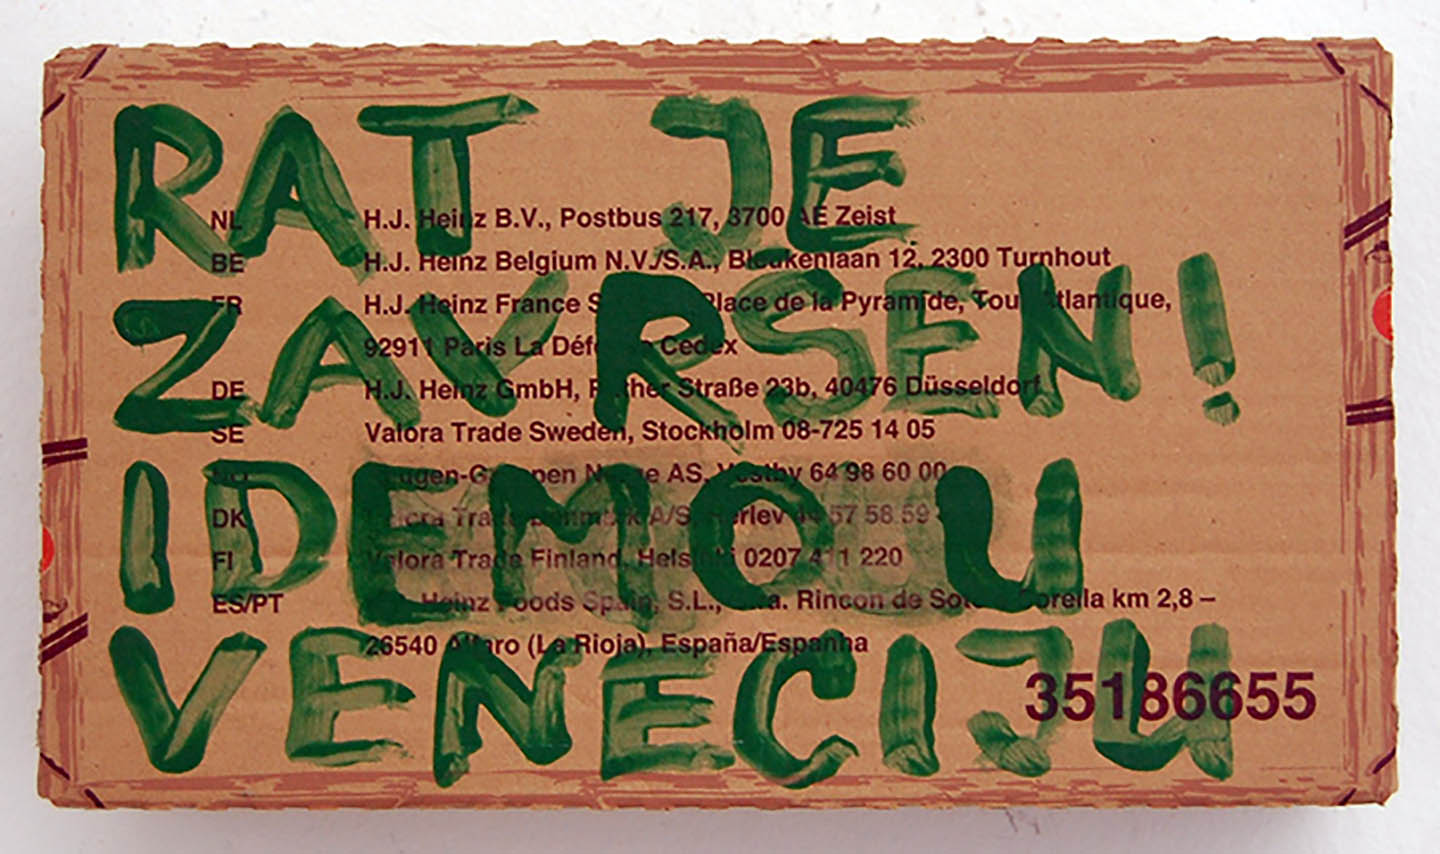 RAT JE
ZAVRSEN!
IDEMO U
VENECIJU
NL H.J. Heinz B.V., Postbus 217, 3700 AE Zeist
BE H.J. Heinz Belgium N.V./S.A., Bleukenlaan 12, 2300 Turnhout
FR H.J. Heinz France Place de la Pyramide, Tour Atlantique,
92911 Paris La Défense Cedex
DE H.J. Heinz GmbH, Straße 23b, 40476 Düsseldorf
SE Valora Trade Sweden, Stockholm 08-725 14 05
NO AS, Vestby 64 98 60 00
DK Valora Trade Danmark A/S, Herlev 44 57 58 59
FI Valora Trade Finland, Helsinki 0207 411 220
ES/PT Heinz Foods Spain, S.L., km 2,8 –
26540 Alfaro (La Rioja), España/Espanha
35186655